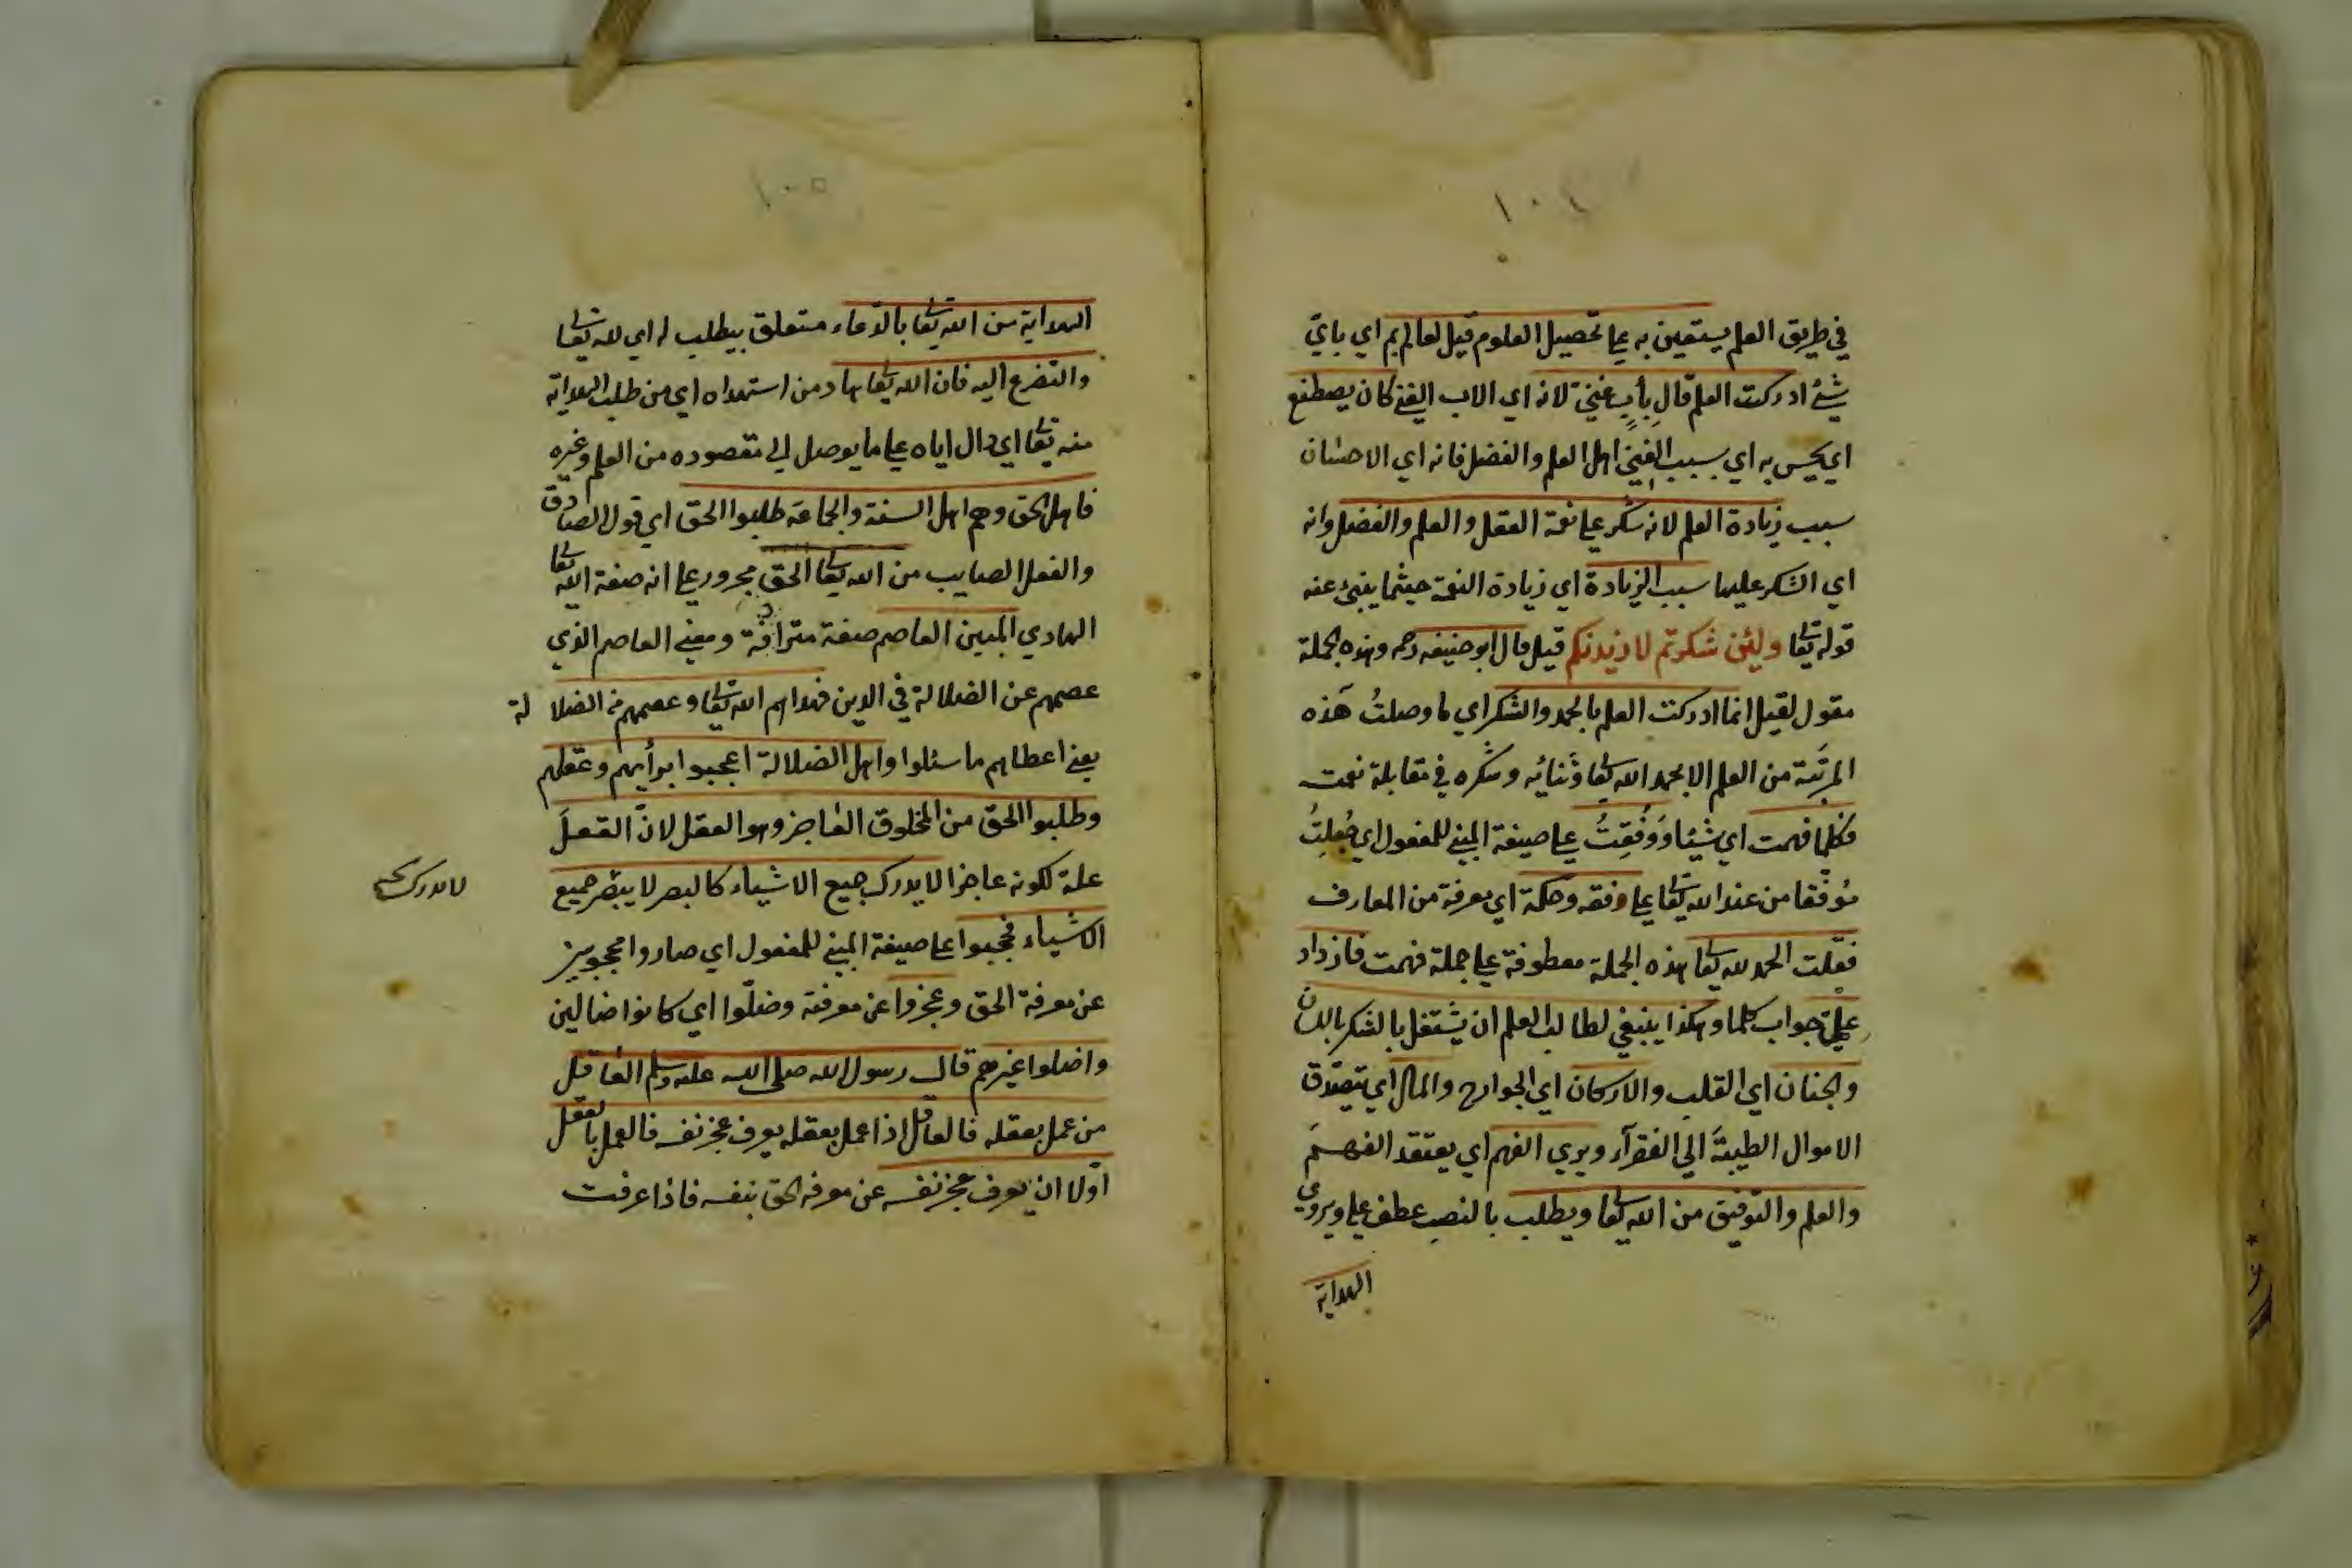 ١٠٤
في طريق العلم يستعين به علي تحصيل العلوم قيل لعالم بم اي باي
شئ ادركت العلم قال بأب غني لانه اي الاب الغني كان يصطنع
اي يحسن به اي بسبب الغني اهل العلم والفضل فانه اي الاحسان
سبب زيادة العلم لانه شكر علي نعمة العقل والعلم والفضل وانه
اي الشكر عليها سبب الزيادة اي زيادة النعمة حيثما ينبئ عنه
قوله تعا ولئن شكرتم لازيدنكم قيل قال ابو حنيفه رحمه وهذه الجملة
مقول لقيل انما ادركت العلم بالحمد والشكر اي ما وصلتُ هذه
المرتبة من العلم الا بحمد الله تعا وثنائه وشكره في مقابلة نعمته
فكلما فهمت اي شيئا ووُفقتُ علي صيغة المبني للمفعول اي جُعلتُ
مُوفقا من عند الله تعا علي فقه وحكمة اي معرفة من المعارف
فقلت الحمد لله تعا هذه الجملة معطوفة علي جملة فهمت فازداد
علمي جواب كلما وهكذا ينبغي لطالب العلم ان يشتغل بالشكر باللسان
والجنان اي القلب والاركان اي الجوارح والمال اي يتصدق
الاموال الطيبة الي الفقرآء ويري الفهم اي يعتقد الفهم
والعلم والتوفيق من الله تعا ويطلب بالنصب عطف علي ويروي
الهداية
١٠٥
الهداية من الله تعا بالدعاء متعلق بيطلب له اي لله تعا
والتضرع اليه فان الله تعا هاد من استهداه اي من طلب الهداية
منه تعا اي دال اياه علي ما يوصل الي مقصوده من العلم وغيره
فاهل الحق وهم اهل السنة والجماعة طلبوا الحق اي قول الصادق
والفعل الصايب من الله تعا الحق مجرور علي انه صفة الله تعا
الهادي المبين العاصم صفة مترادفة ومعني العاصم الذي
عصمهم عن الضلالة في الدين فهداهم الله تعا وعصمهم من الضلا لة
يعني اعطاهم ما سئلوا واهل الضلالة اعجبوا برأيهم وعقلهم
وطلبوا الحق من المخلوق العاجز وهو العقل لانّ العقل
علة لكونه عاجزا لا يدرك جميع الاشياء كالبصر لا يبصر جميع
لا يدرك
الاشياء فحجبوا علي صيغة المبني للمفعول اي صاروا محجوبين
عن معرفة الحق وعجزوا عن معرفته وضلّوا اي كانوا ضالين
واضلوا غيرهم قال رسول الله صلي الله عليه وسلم العاقل
من عمل بعقله فالعاقل اذا عمل بعقله يعرف عجز نفسه فالعمل بالعقل
اوّلا ان يعرف عجز نفسه عن معرفة الحق بنفسه فاذا عرفت